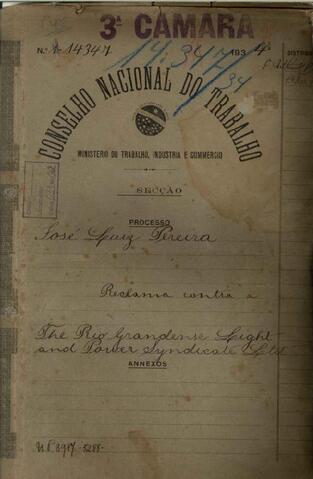 3ª CAMARA
N.º 14347/1934
14.347/34
DISTRIB
CONSELHO NACIONAL DO TRABALHO
MINISTERIO DO TRABALHO, INDUSTRIA E COMMERCIO
SECÇÃO
PROCESSO
José Luiz Pereira
Reclama contra a
The Rio Grandense Light
and Power Syndicate Ltd
ANNEXOS